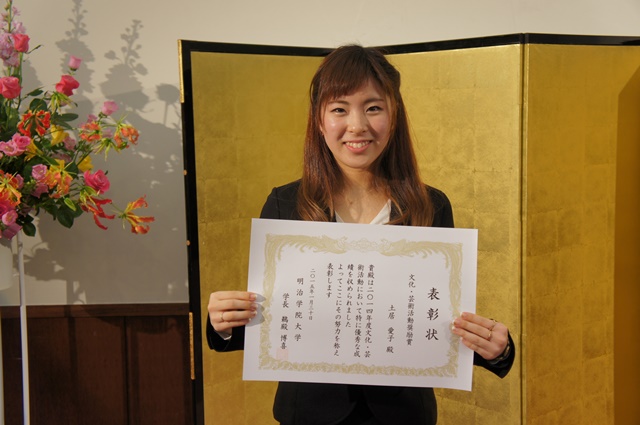 表彰状
文化・芸術活動奨励賞
土居 愛子 殿
貴殿は二〇一四年度文化・芸
術活動において特に優秀な成
績を収められました
よってここにその努力を称え
表彰します
二〇一五年一月三十日
明治学院大学
学長 鵜殿 博喜